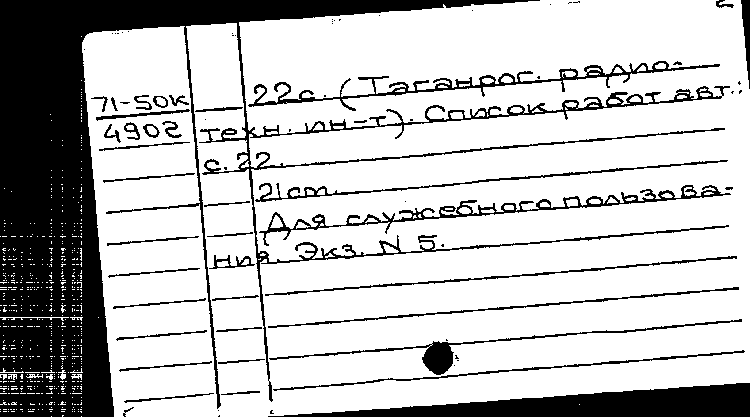 2
71-50к 22с. (Таганрог. радио-
4902 техн. ин-т). Список работ авт.:
с. 22.
21cm.
Для служебного пользова-
ния. Экз. N 5.